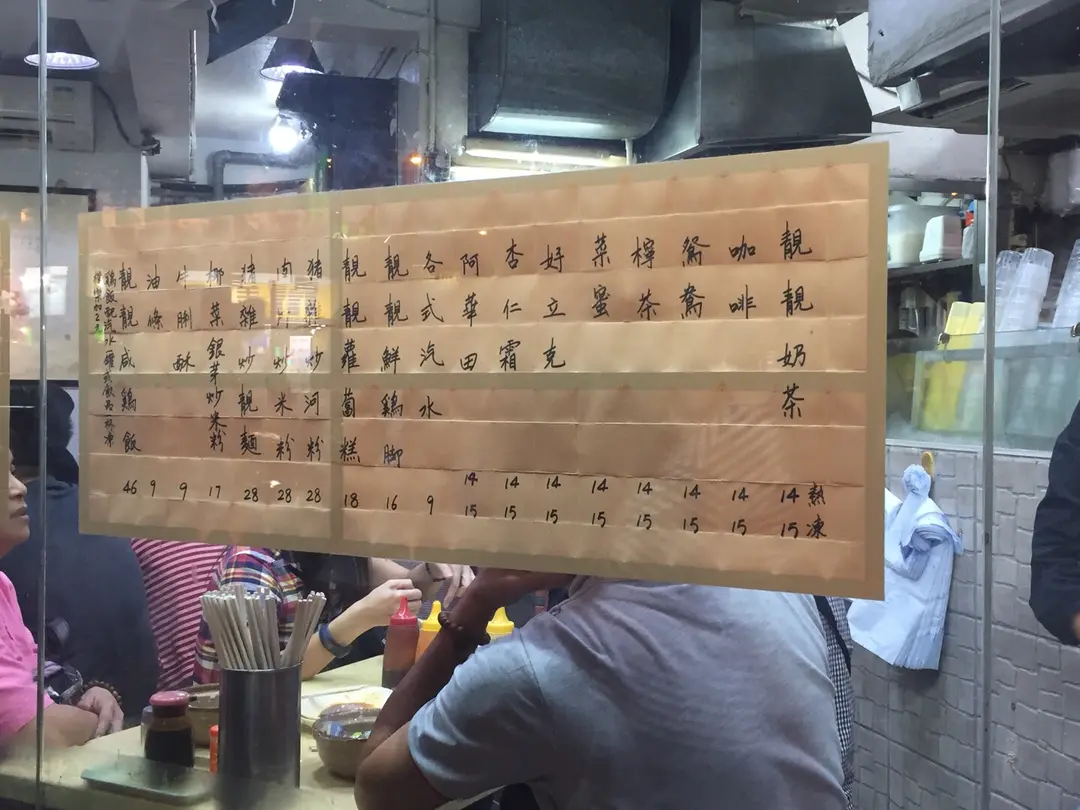 熱
凍
靚靚奶茶 14 15
咖啡 14 15
鴛鴦 14 15
檸茶 14 15
菜蜜 14 15
好立克 14 15
杏仁霜 14 15
阿華田 14 15
各式汽水 9
靚靚鮮鷄脚 16
靚靚蘿蔔糕 18
猪炒河粉 28
肉片炒米粉 28
猪雜炒靚麵 28
椰菜銀芽炒米粉 17
牛脷酥 9
油條 9
靚靚咸鷄飯 46
鷄飯配